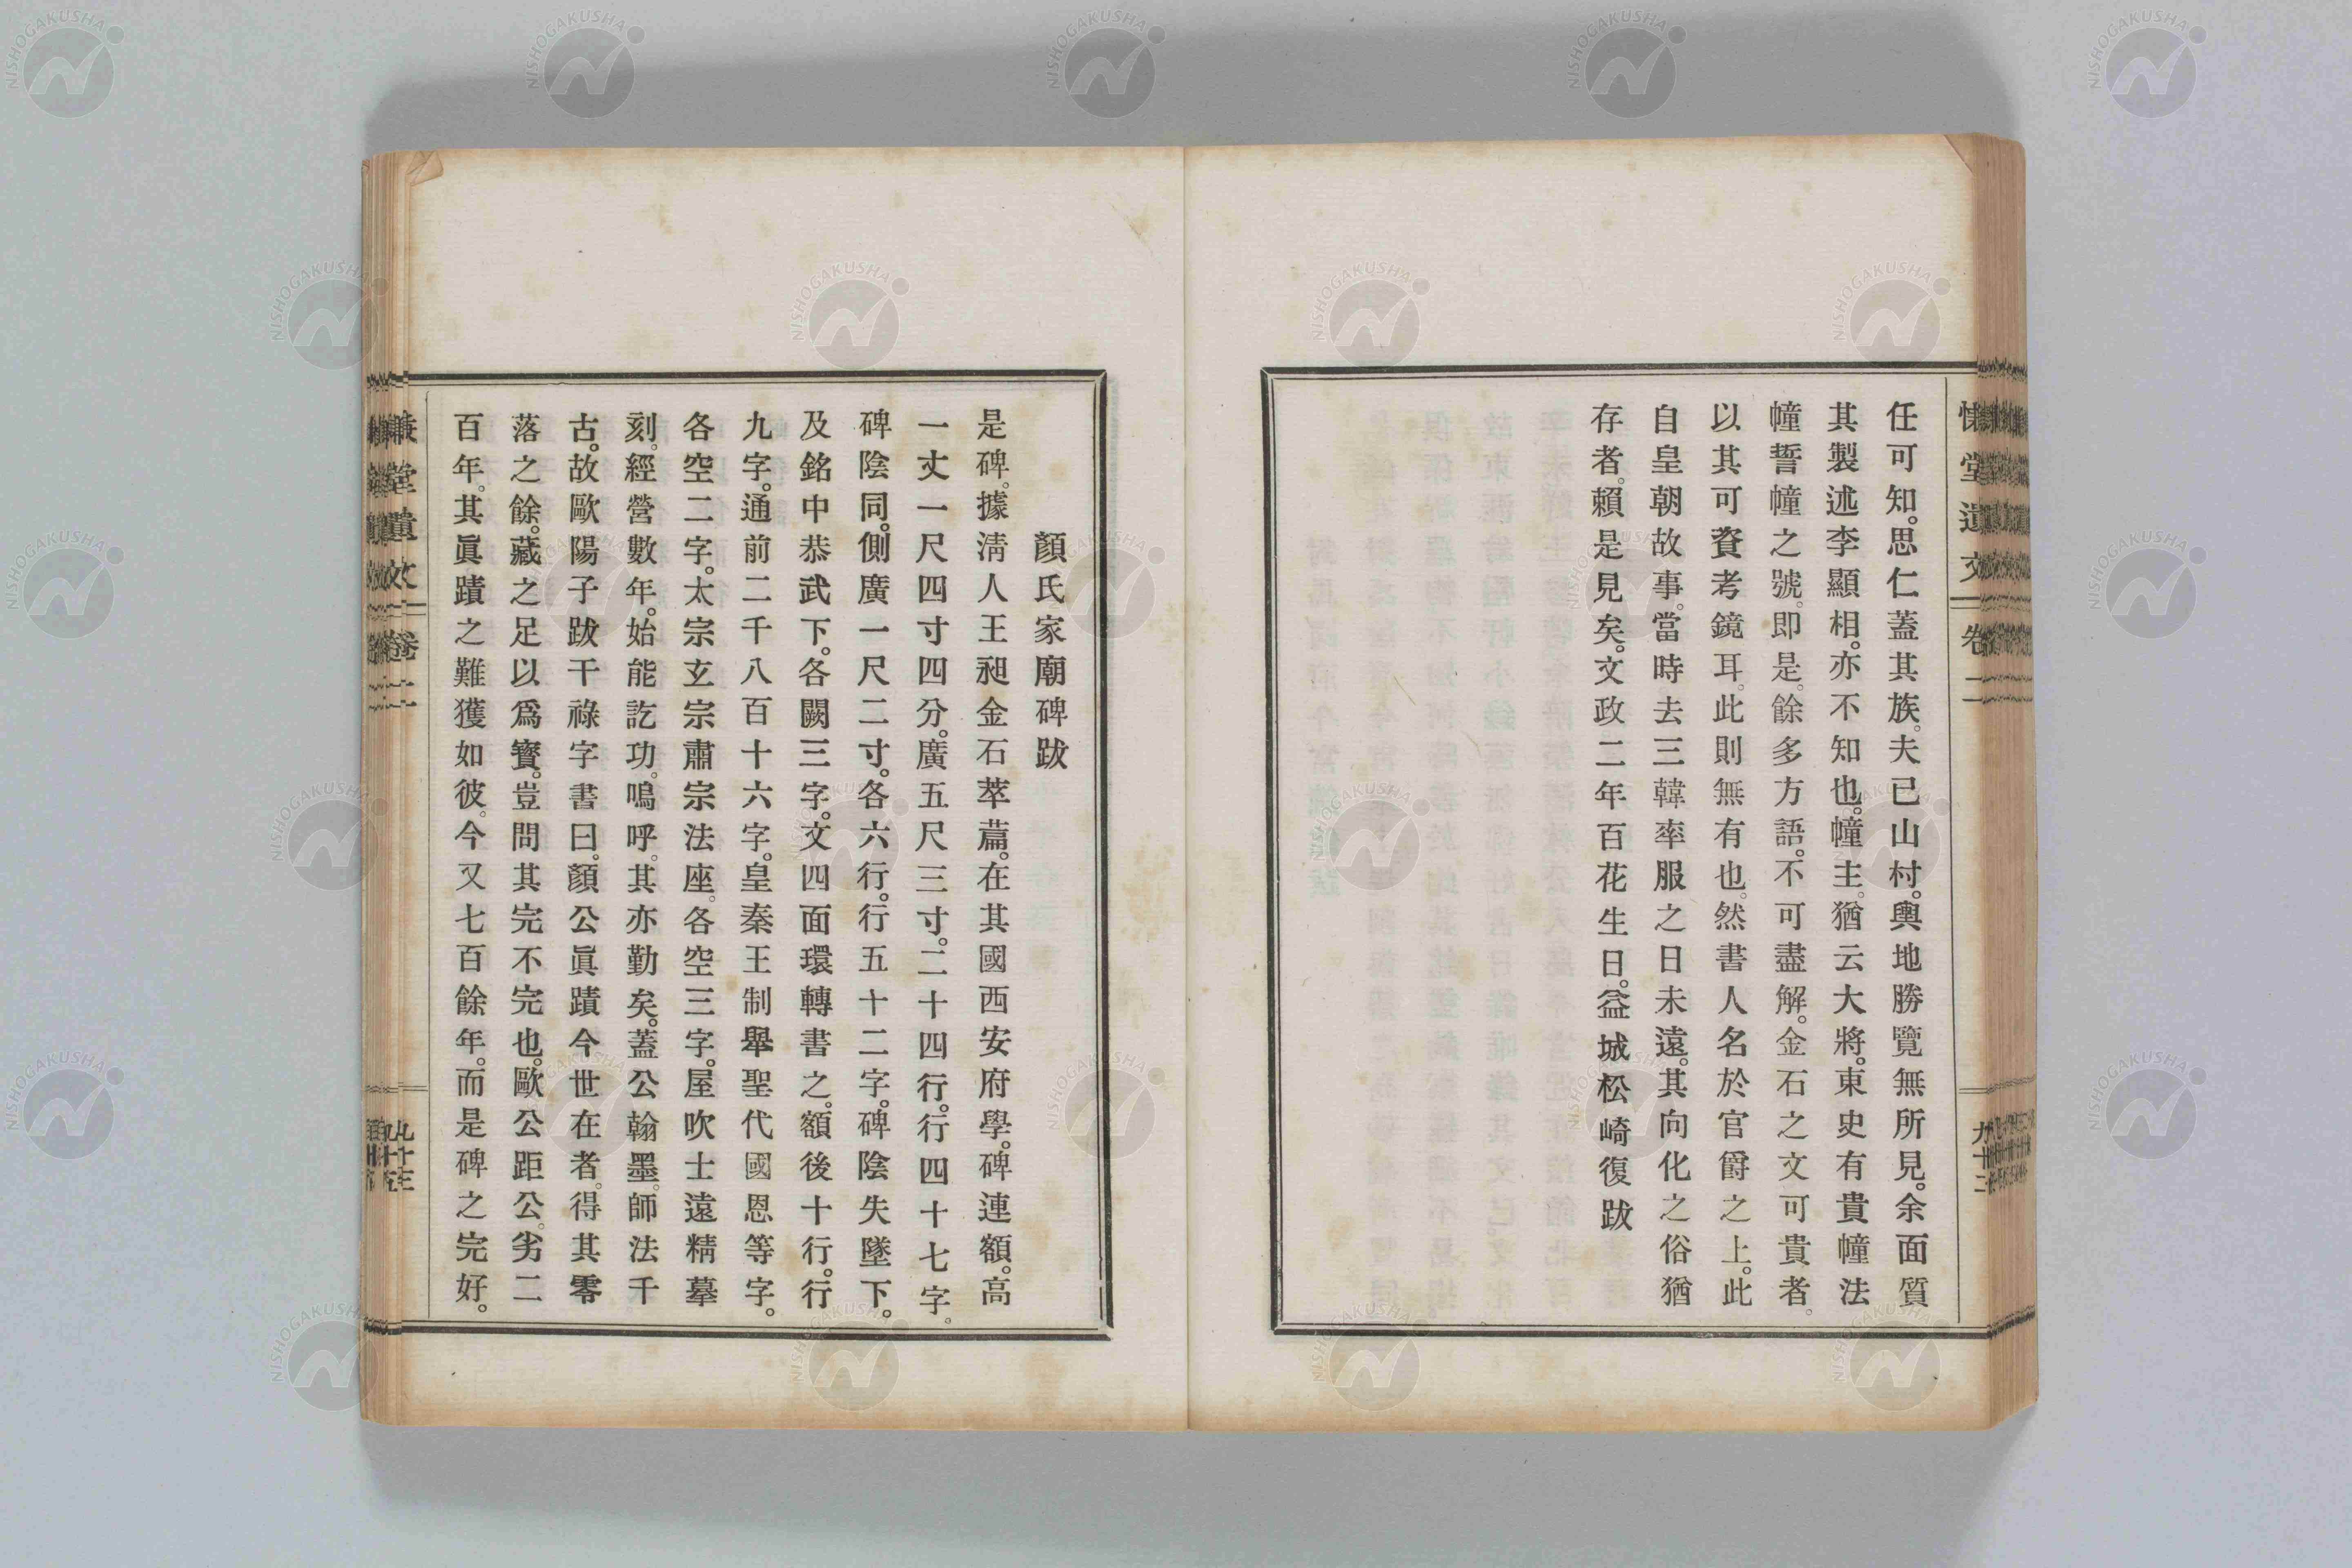 任可知。思仁蓋其族。夫已山村。輿地勝覽無所見。余面質
其製述李顯相。亦不知也。幢主。猶云大將。東史有貴幢法
幢誓幢之號。即是。餘多方語。不可盡解。金石之文可貴者。
以其可資考鏡耳。此則無有也。然書人名於官爵之上。此
自皇朝故事。當時去三韓率服之日未遠。其向化之俗猶
存者。賴是見矣。文政二年百花生日。益城松崎復跋
顏氏家廟碑跋
是碑。據淸人王昶金石萃萹。在其國西安府學。碑連額。高
一丈一尺四寸四分。廣五尺三寸。二十四行。行四十七字。
碑陰同。側廣一尺二寸。各六行。行五十二字。碑陰失墜下。
及銘中恭武下。各闕三字。文四面環轉書之。額後十行。行
九字。通前二千八百十六字。皇秦王制舉聖代國恩等字。
各空二字。太宗玄宗肅宗法座。各空三字。屋吹士遠精摹
刻。經營數年。始能訖功。嗚呼。其亦勤矣。蓋公翰墨。師法千
古。故歐陽子跋干祿字書曰。顏公眞蹟今世在者。得其零
落之餘。藏之足以爲寶。豈問其完不完也。歐公距公。劣二
百年。其眞蹟之難獲如彼。今又七百餘年。而是碑之完好。
慊堂遺文 卷二
九十三
NISHOGAKUSHA